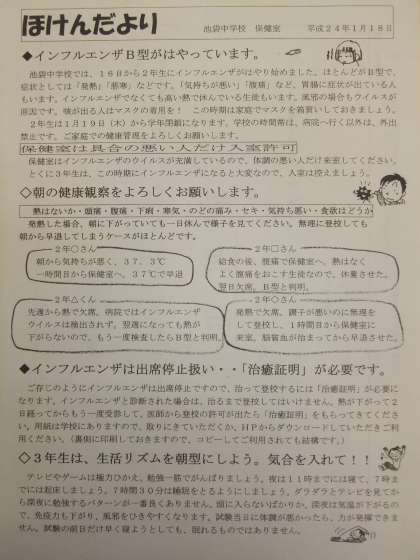 ほけんだより
池袋中学校　保健室　　平成２４年１月１８日
◆インフルエンザＢ型がはやっています。
池袋中学校では、１６日から２年生にインフルエンザがはやり始めました。ほとんどがＢ型で、
症状としては「発熱」「悪寒」などです。「気持ちが悪い」「腹痛」など、胃腸に症状が出ている人
もいます。インフルエンザでなくても高い熱で休んでいる生徒もいます。風邪の場合もウイルスが
原因です。咳が出る人はマスクの着用を！　この時期は家庭でマスクを箱買いしておきましょう。
２年生は１月１９日（木）から学年閉鎖になります。学校の時間帯は、病院へ行く以外は、外出
禁止です。ご家庭での健康管理をよろしくお願いします。
保健室は具合の悪い人だけ入室許可
保健室はインフルエンザのウイルスが充満しているので、体調の悪い人だけ来室してください。
とくに３年生は、この時期にインフルエンザになると大変なので、入室は控えましょう。
◇朝の健康観察をよろしくお願いします。
熱はないか・頭痛・腹痛・下痢・寒気・のどの痛み・セキ・気持ち悪い・食欲はどうか
発熱した場合、朝に下がっていても一日休んで様子を見てください。無理に登校しても
朝から早退してしまうケースがほとんどです。
２年○さん
朝から気持ちが悪く、３７．３℃
一時間目から保健室へ。３７℃で早退
２年□さん
給食の後、腹痛で保健室へ。熱はなく
よく腹痛をおこす生徒なので、休養させた。
翌日欠席。Ｂ型と判明。
２年△くん
先週から熱で欠席。病院ではインフルエンザ
ウイルスは検出されず。翌週になっても熱が
下がらないので、もう一度検査したらＢ型と判明。
２年◇さん
発熱で欠席。調子が悪いのに無理を
して登校し、１時間目から保健室に
来室。脳貧血が治まってから早退させた。
◆インフルエンザは出席停止扱い・・「治癒証明」が必要です。
ご存じのようにインフルエンザは出席停止ですので、治って登校するには「治癒証明」が必要に
なります。インフルエンザと診断された場合は、治るまで登校してはいけません。熱が下がって２
日経ってからもう一度受診して、医師から登校の許可が出たら「治癒証明」をもらってきてくださ
い。用紙は学校にありますので、取りにきていただくか、ＨＰからダウンロードしていただきご利
用ください。（裏側に印刷しておきますので、コピーしてご利用されても結構です。）
◇３年生は、生活リズムを朝型にしよう。気合を入れて！！
テレビやゲームは極力ひかえ、勉強一筋でがんばりましょう。夜は１１時までには寝て、７時ま
でには起床しましょう。７時間３０分は睡眠をとるようにしましょう。ダラダラとテレビを見てか
ら深夜に勉強するパターンが一番良くありません。頭に入らないばかりか、深夜は気温が下がるの
で、免疫力も下がり、風邪をひきやすくなります。試験当日に体調が悪かったら、力が発揮できま
せん。試験の前日だけ早く寝ようとしても、眠れるものではありません。